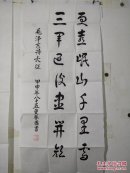 更喜岷山千里雪
三军过後盡開颜
毛泽东诗长征
甲申年八十